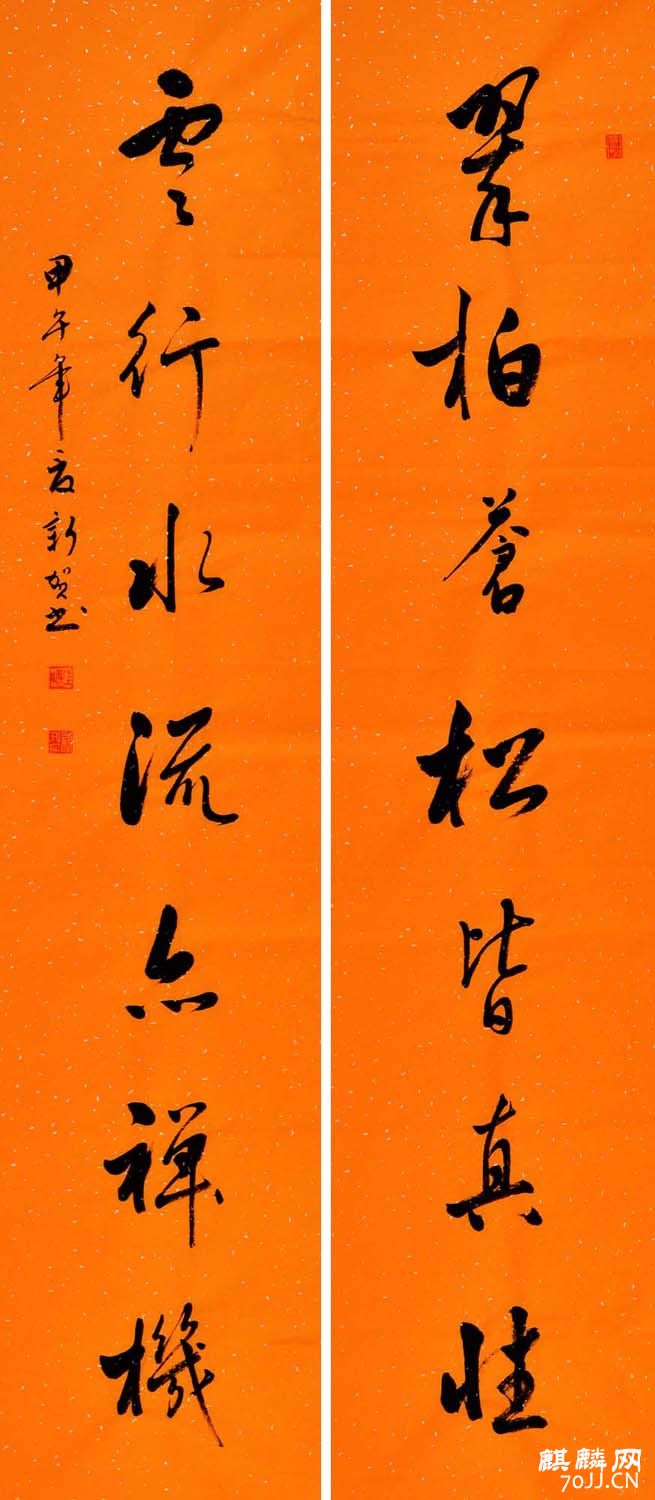 翠柏蒼松皆真性
雲行水流亦禪機
甲午年夏新賀书
麒麟网
70JJ.CN